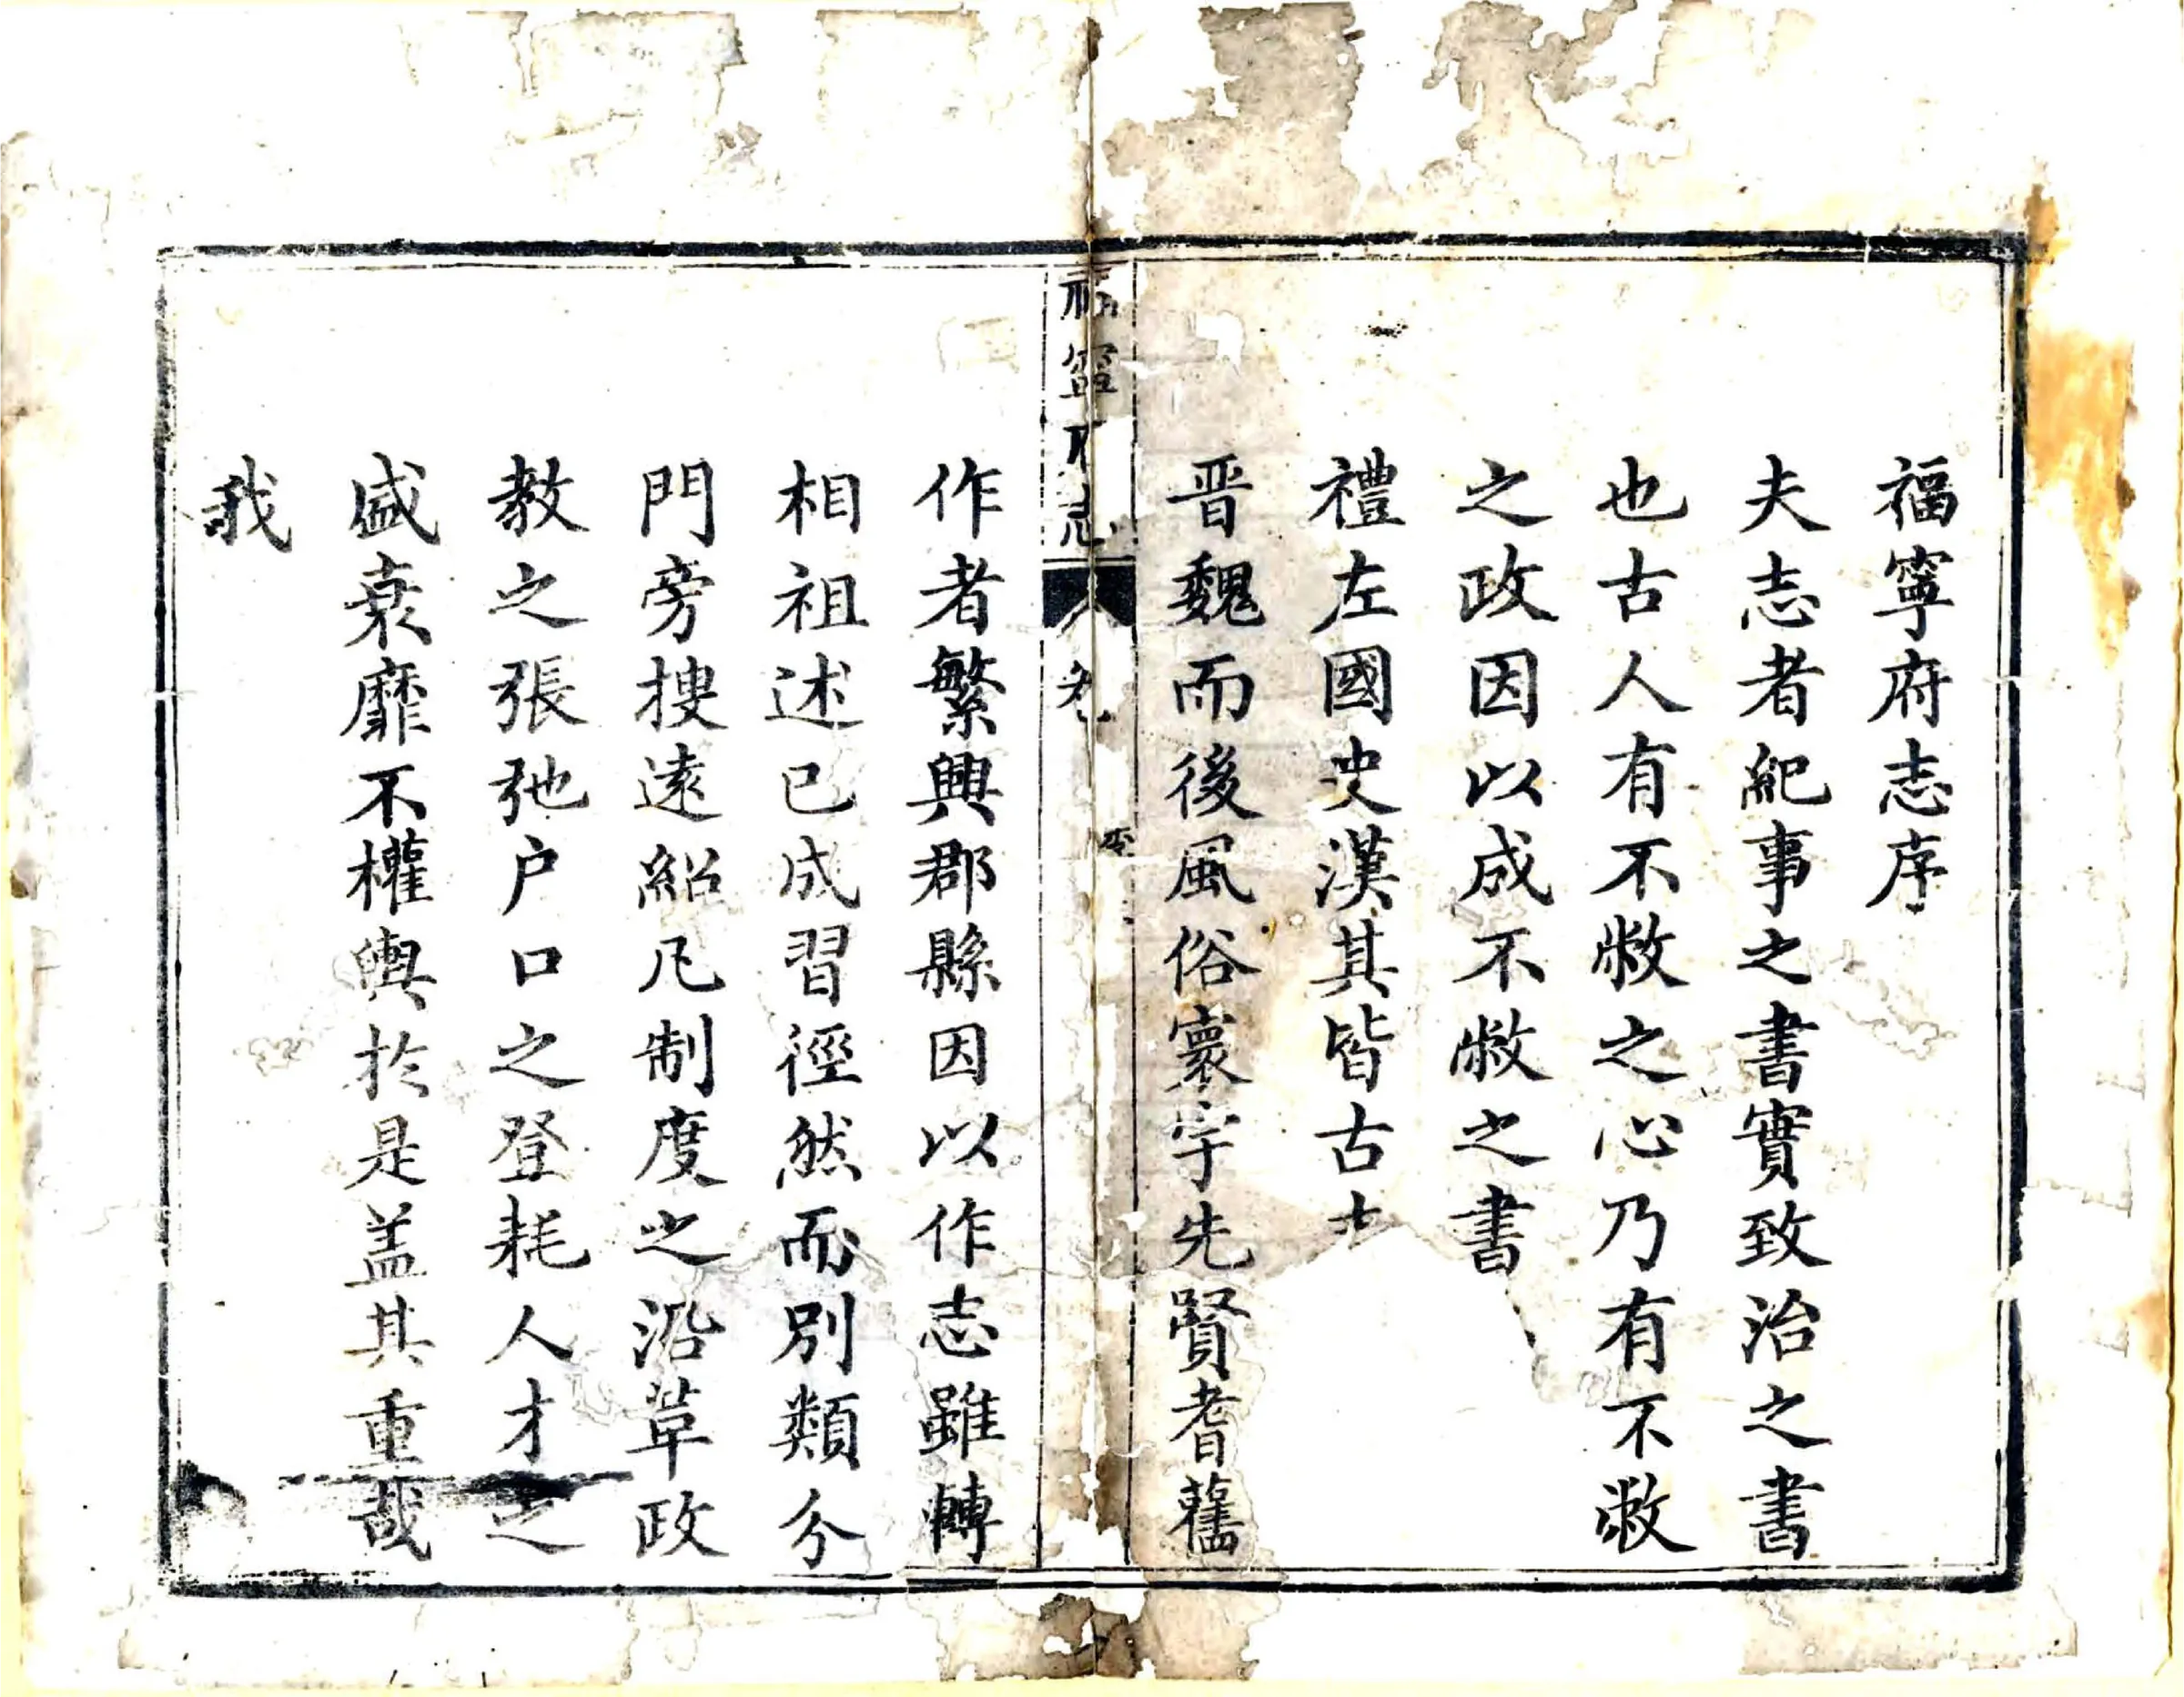 福寧府志序
夫志者紀事之書實致治之書
也古人有不敝之心乃有不敝
之政因以成不敝之書
禮左國史漢其皆古
晋魏而後風俗寰宇先賢耆舊
福寧府志
卷
序
作者繁興郡縣因以作志雖轉
相祖述已成習徑然而別類分
門旁搜遠紹凡制度之沿革政
教之張弛户口之登耗人才之
盛衰靡不權輿於是盖其重哉
我